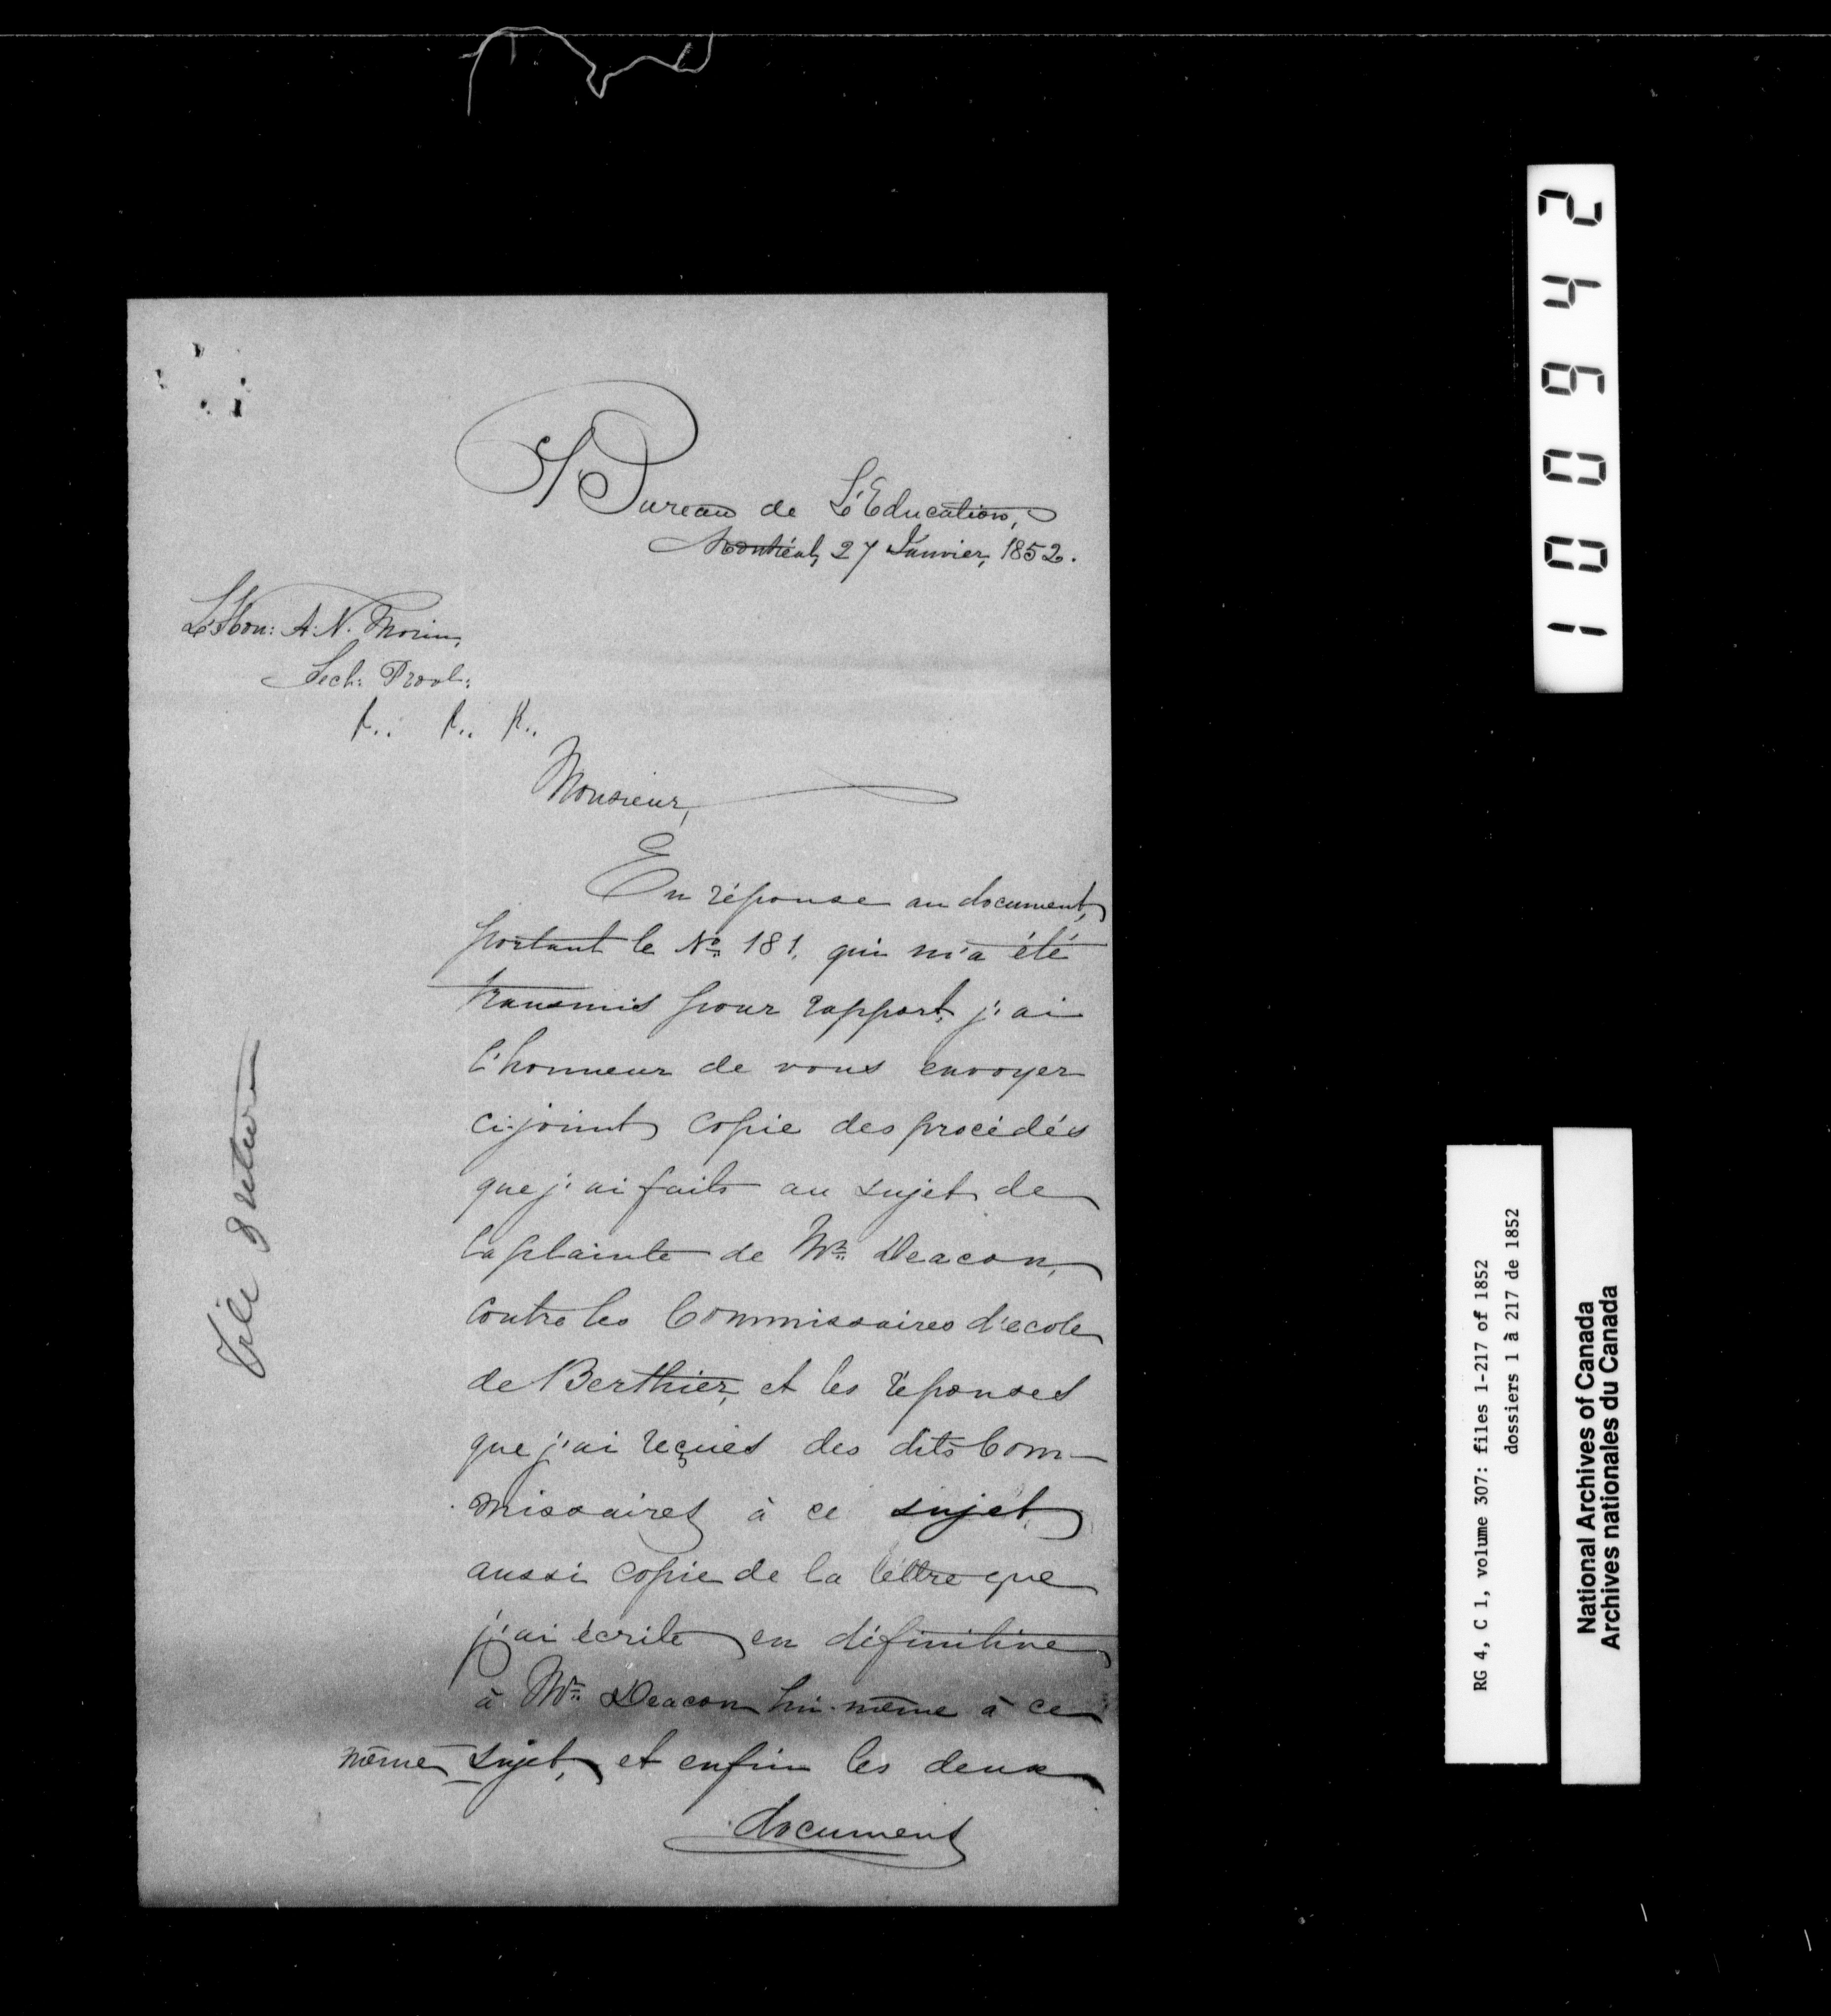 Bureau de L'Education,
Montréal, 27 Janvier, 1852.
L'Hon: A. N. Morin,
Secr: Provl:
&.. &.. &..
Monsieur,
En réponse au document,
portant le No. 181, qui m'a été
transmis pour rapport, j'ai
l'honneur de vous envoyer
ci-joint copie des procédés
que j'ai faits au sujet de
la plainte de Mr. Deacon,
contre les Commissaires d'école
de Berthier, et les réponses
que j'ai reçues des dits Com-
missaires à ce sujet,
aussi copie de la lettre que
j'ai écrite en définitive
à Mr. Deacon lui-même à ce
même sujet, et enfin les deux
document
File
100942
RG 4, C 1, volume 307: files 1-217 of 1852
dossiers 1 à 217 de 1852
National Archives of Canada
Archives nationales du Canada